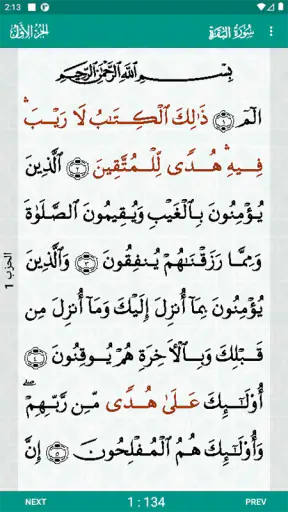 2:13
الجزء الأول
سُورَةُ البَقَرَة
بِسْمِ ٱللَّهِ ٱلرَّحْمَٰنِ ٱلرَّحِيمِ
الٓمٓ ١ ذَٰلِكَ ٱلْكِتَٰبُ لَا رَيْبَ ۛ
فِيهِ ۛ هُدًى لِّلْمُتَّقِينَ ٢ ٱلَّذِينَ
يُؤْمِنُونَ بِٱلْغَيْبِ وَيُقِيمُونَ ٱلصَّلَوٰةَ
وَمِمَّا رَزَقْنَٰهُمْ يُنفِقُونَ ٣ وَٱلَّذِينَ
يُؤْمِنُونَ بِمَآ أُنزِلَ إِلَيْكَ وَمَآ أُنزِلَ مِن
قَبْلِكَ وَبِٱلْءَاخِرَةِ هُمْ يُوقِنُونَ ٤
أُو۟لَٰٓئِكَ عَلَىٰ هُدًى مِّن رَّبِّهِمْ ۖ
وَأُو۟لَٰٓئِكَ هُمُ ٱلْمُفْلِحُونَ ٥ إِنَّ
الحزب 1
NEXT
1 : 134
PREV